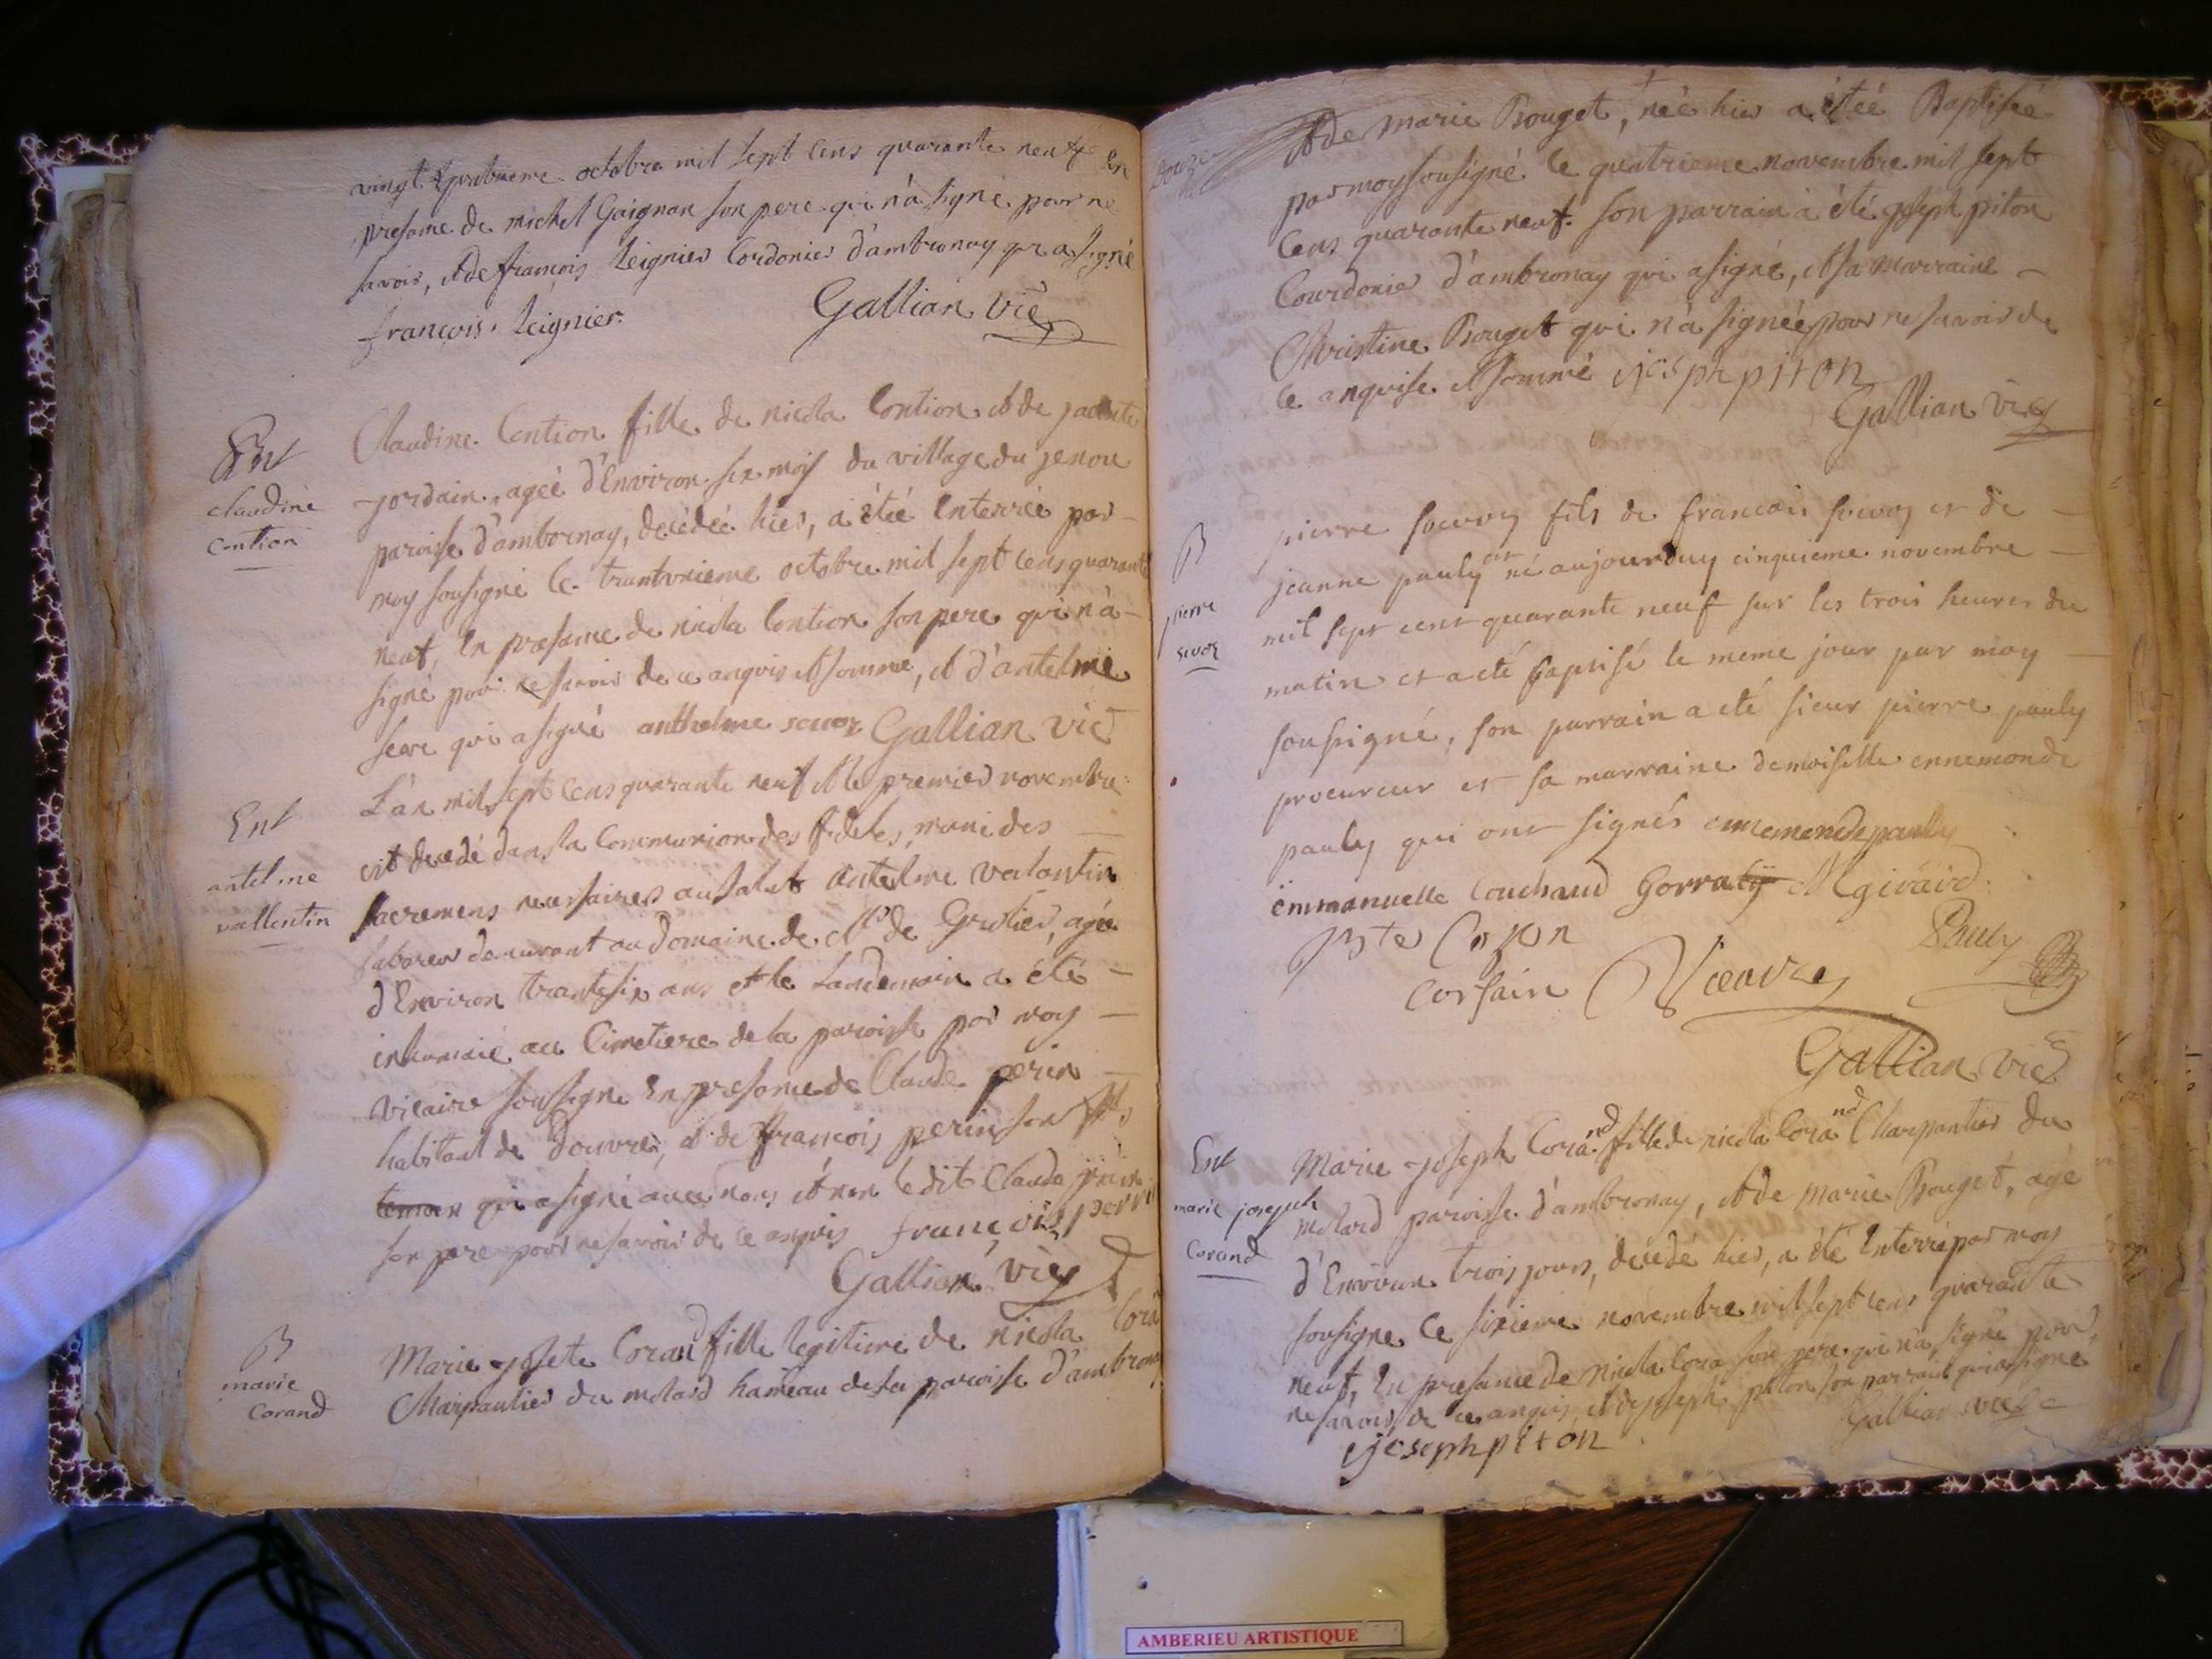 vingt quatrieme octobre mil sept cens quarante neuf en
presame de michel Gaignon son pere qui n'a signe pour ne
savoir, et de françois Leignier Cordonier d'ambronay qui a signé
françois Leignier. Gallian vic
Ent
claudine
Contion
Claudine Contion fille de nicola Contion et de
jordain, ageé d'Environ six mois du village du genou
paroisse d'ambornay, decedeé hier, a étée Enterreé par
moy sousigné le trantunieme octobre mil sept cens quarante
neuf, En presame de nicola Contion son pere qui n'à
signé pour ne savoir de ce anquis et sommé, et d'antelme
qui a signé anthelme Gallian vic
Ent
antelme
vallentin
L'an mil sept cens quarante neuf et le premier novembre
est decedé dans la Communion des fideles, muni des
sacremens necessaires au salut antelme valantin
laboreur demeurant au domaine de Mr de Grolier, agé
d'Environ trante six ans et le landemain a été
inhumé au Cimetiere de la paroisse par moy
vicaire sousigne En presame de Claude perin
habitant de Douvre, et de françois perin son fils
qui a signé avec nous et non ledit Claude perin
son pere pour ne savoir de ce anquis françois perrin
Gallian vic
B
marie
Corand
Marie josete Corand fille legitime de nicola Cora
Charpantier du molard hameau de la paroisse d'ambronay
Douze
et de marie Bouget, neé hier a étée Baptiseé
par moy sousigné le quatrieme novembre mil sept
cens quarante neuf. son parrain a été joseph piton
Courdonier d'ambronay qui a signé, et sa marraine
Christine Bouget qui n'a signée pour ne savoir de
ce anquise et sommé joseph piton
Gallian vic
B
pierre
sevoz
pierre fils de francois et de
jeanne pauly est né aujourduy cinquieme novembre
mil sept cent quarante neuf sur les trois heures du
matin et a eté baptisé le meme jour par moy
sousigné, son parrain a eté sieur pierre pauly
procureur et sa marraine demoiselle ennemonde
pauly qui ont signés ennemonde pauly
emmanuelle Couchaud M girard
Bte Cozon Pauly
Corsain
Gallian vic
Ent
marie joseph
Corand
Marie joseph Corand fille de nicola Corand Charpantier du
molard paroisse d'ambronay, et de marie Bouget, agé
d'Environ trois jours, decedé hier, a été Enterré par moy
sousigne le sixieme novembre mil sept cens quarante
neuf, En presame de nicola Cora son pere qui n'a signé pour
ne savoir de ce anquis, et de joseph piton son parrain qui a signé
joseph piton Gallian vic
AMBERIEU ARTISTIQUE